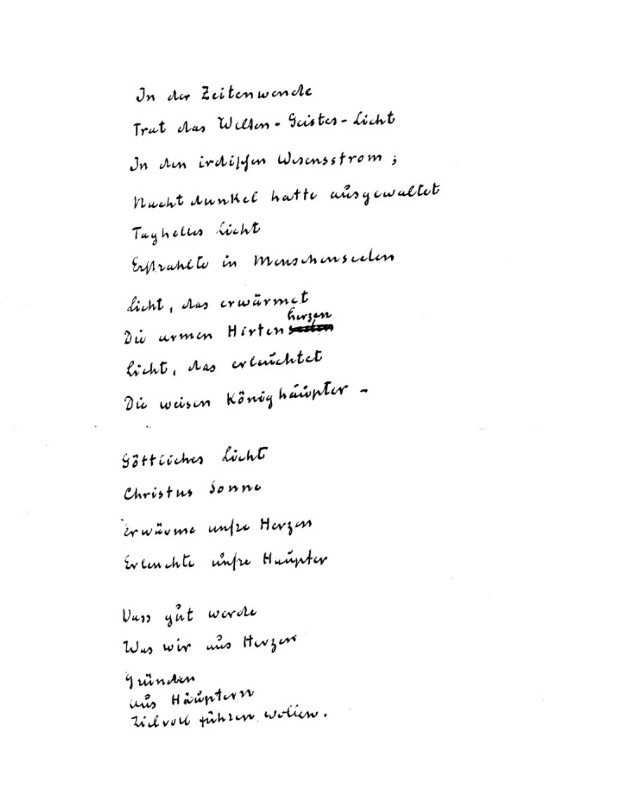 In der Zeitenwende
Trat das Welten-Geistes-Licht
In den irdischen Wesensstrom;
Nachtdunkel hatte ausgewaltet
Taghelles Licht
Erstrahlte in Menschenseelen
Licht, das erwärmet
herzen
Die armen Hirten
Licht, das erleuchtet
Die weisen Könighäupter –
Göttliches Licht
Christus Sonne
Erwärme unsre Herzen
Erleuchte unsre Häupter
Dass gut werde
Was wir aus Herzen
Gründen
aus Häuptern
Zielvoll führen wollen.